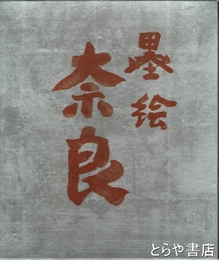 墨絵
奈良
とらや書店